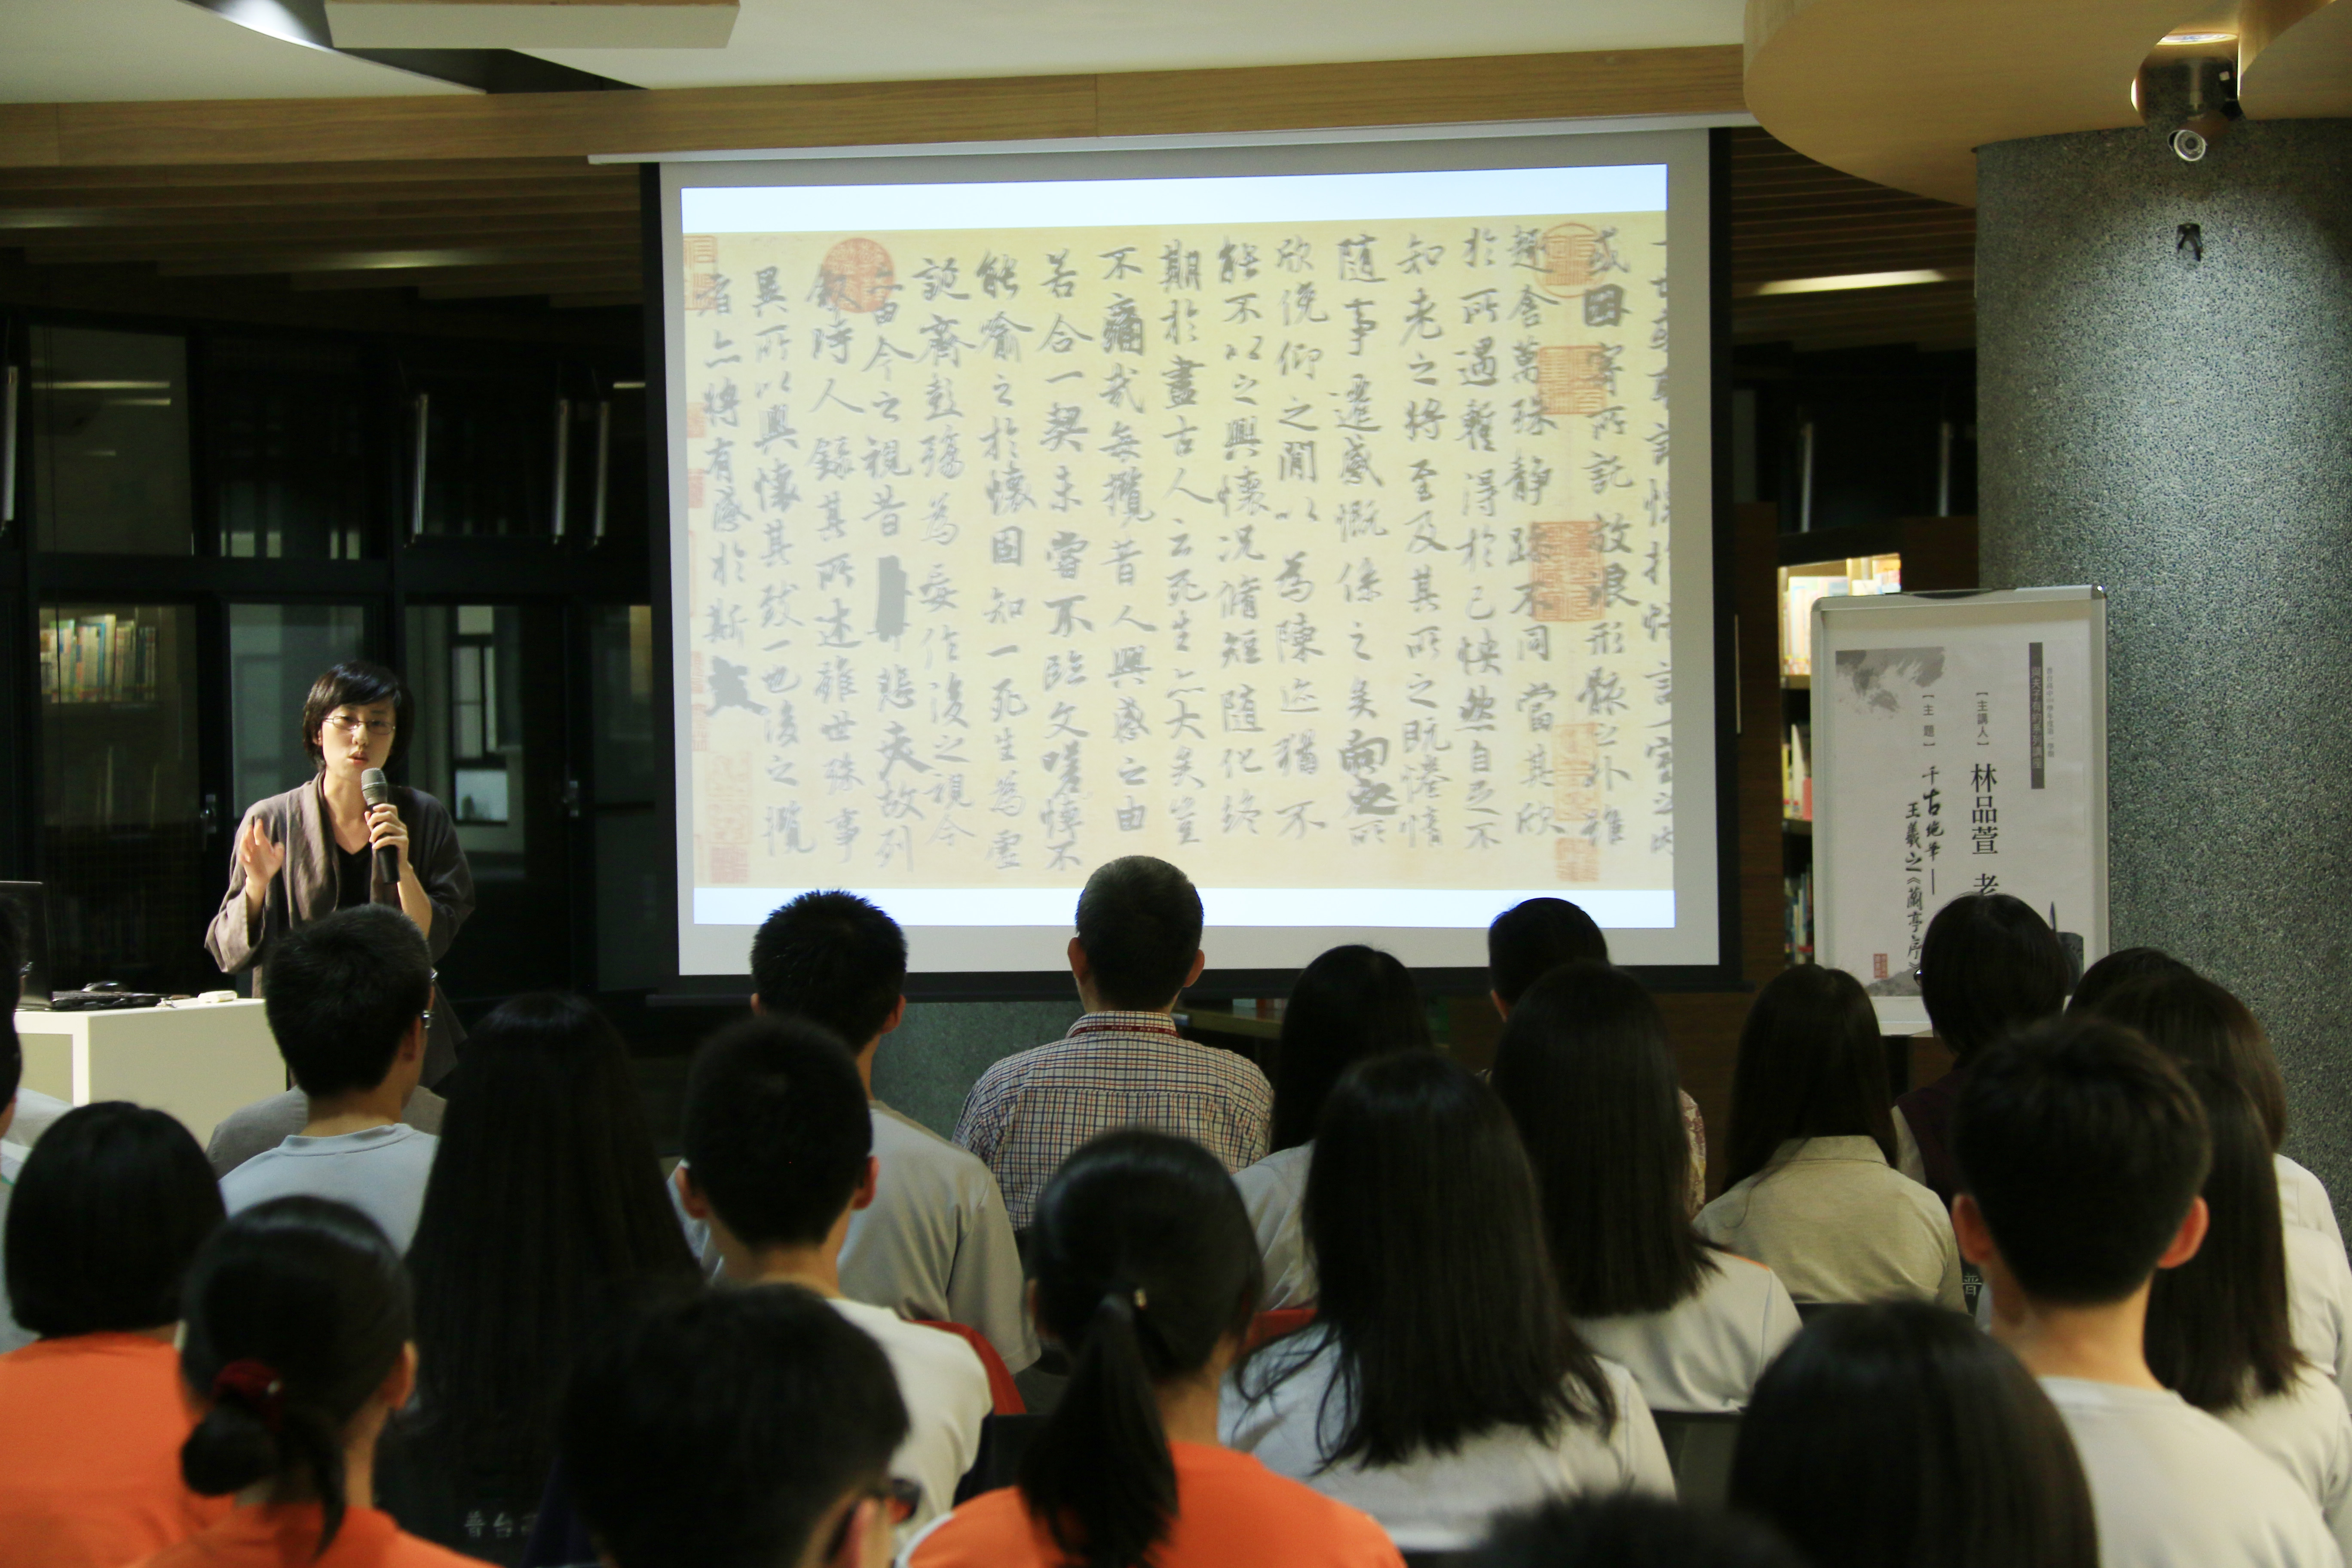 或因寄所託放浪形骸之外雖
趣舍萬殊靜躁不同當其欣
於所遇暫得於己怏然自足不
知老之將至及其所之既惓情
隨事遷感慨係之矣向之所
欣俛仰之閒以為陳迹猶不
能不以之興懷況脩短隨化終
期於盡古人云死生亦大矣豈
不痛哉每攬昔人興感之由
若合一契未嘗不臨文嗟悼不
能喻之於懷固知一死生為虛
誕齊彭殤為妄作後之視今
亦由今之視昔 悲夫故列
敘時人錄其所述雖世殊事
異所以興懷其致一也後之攬
者亦將有感於斯
【主講人】 林品萱 老
【主 題】 千古絕筆—
王羲之《蘭亭序》
普台高
普